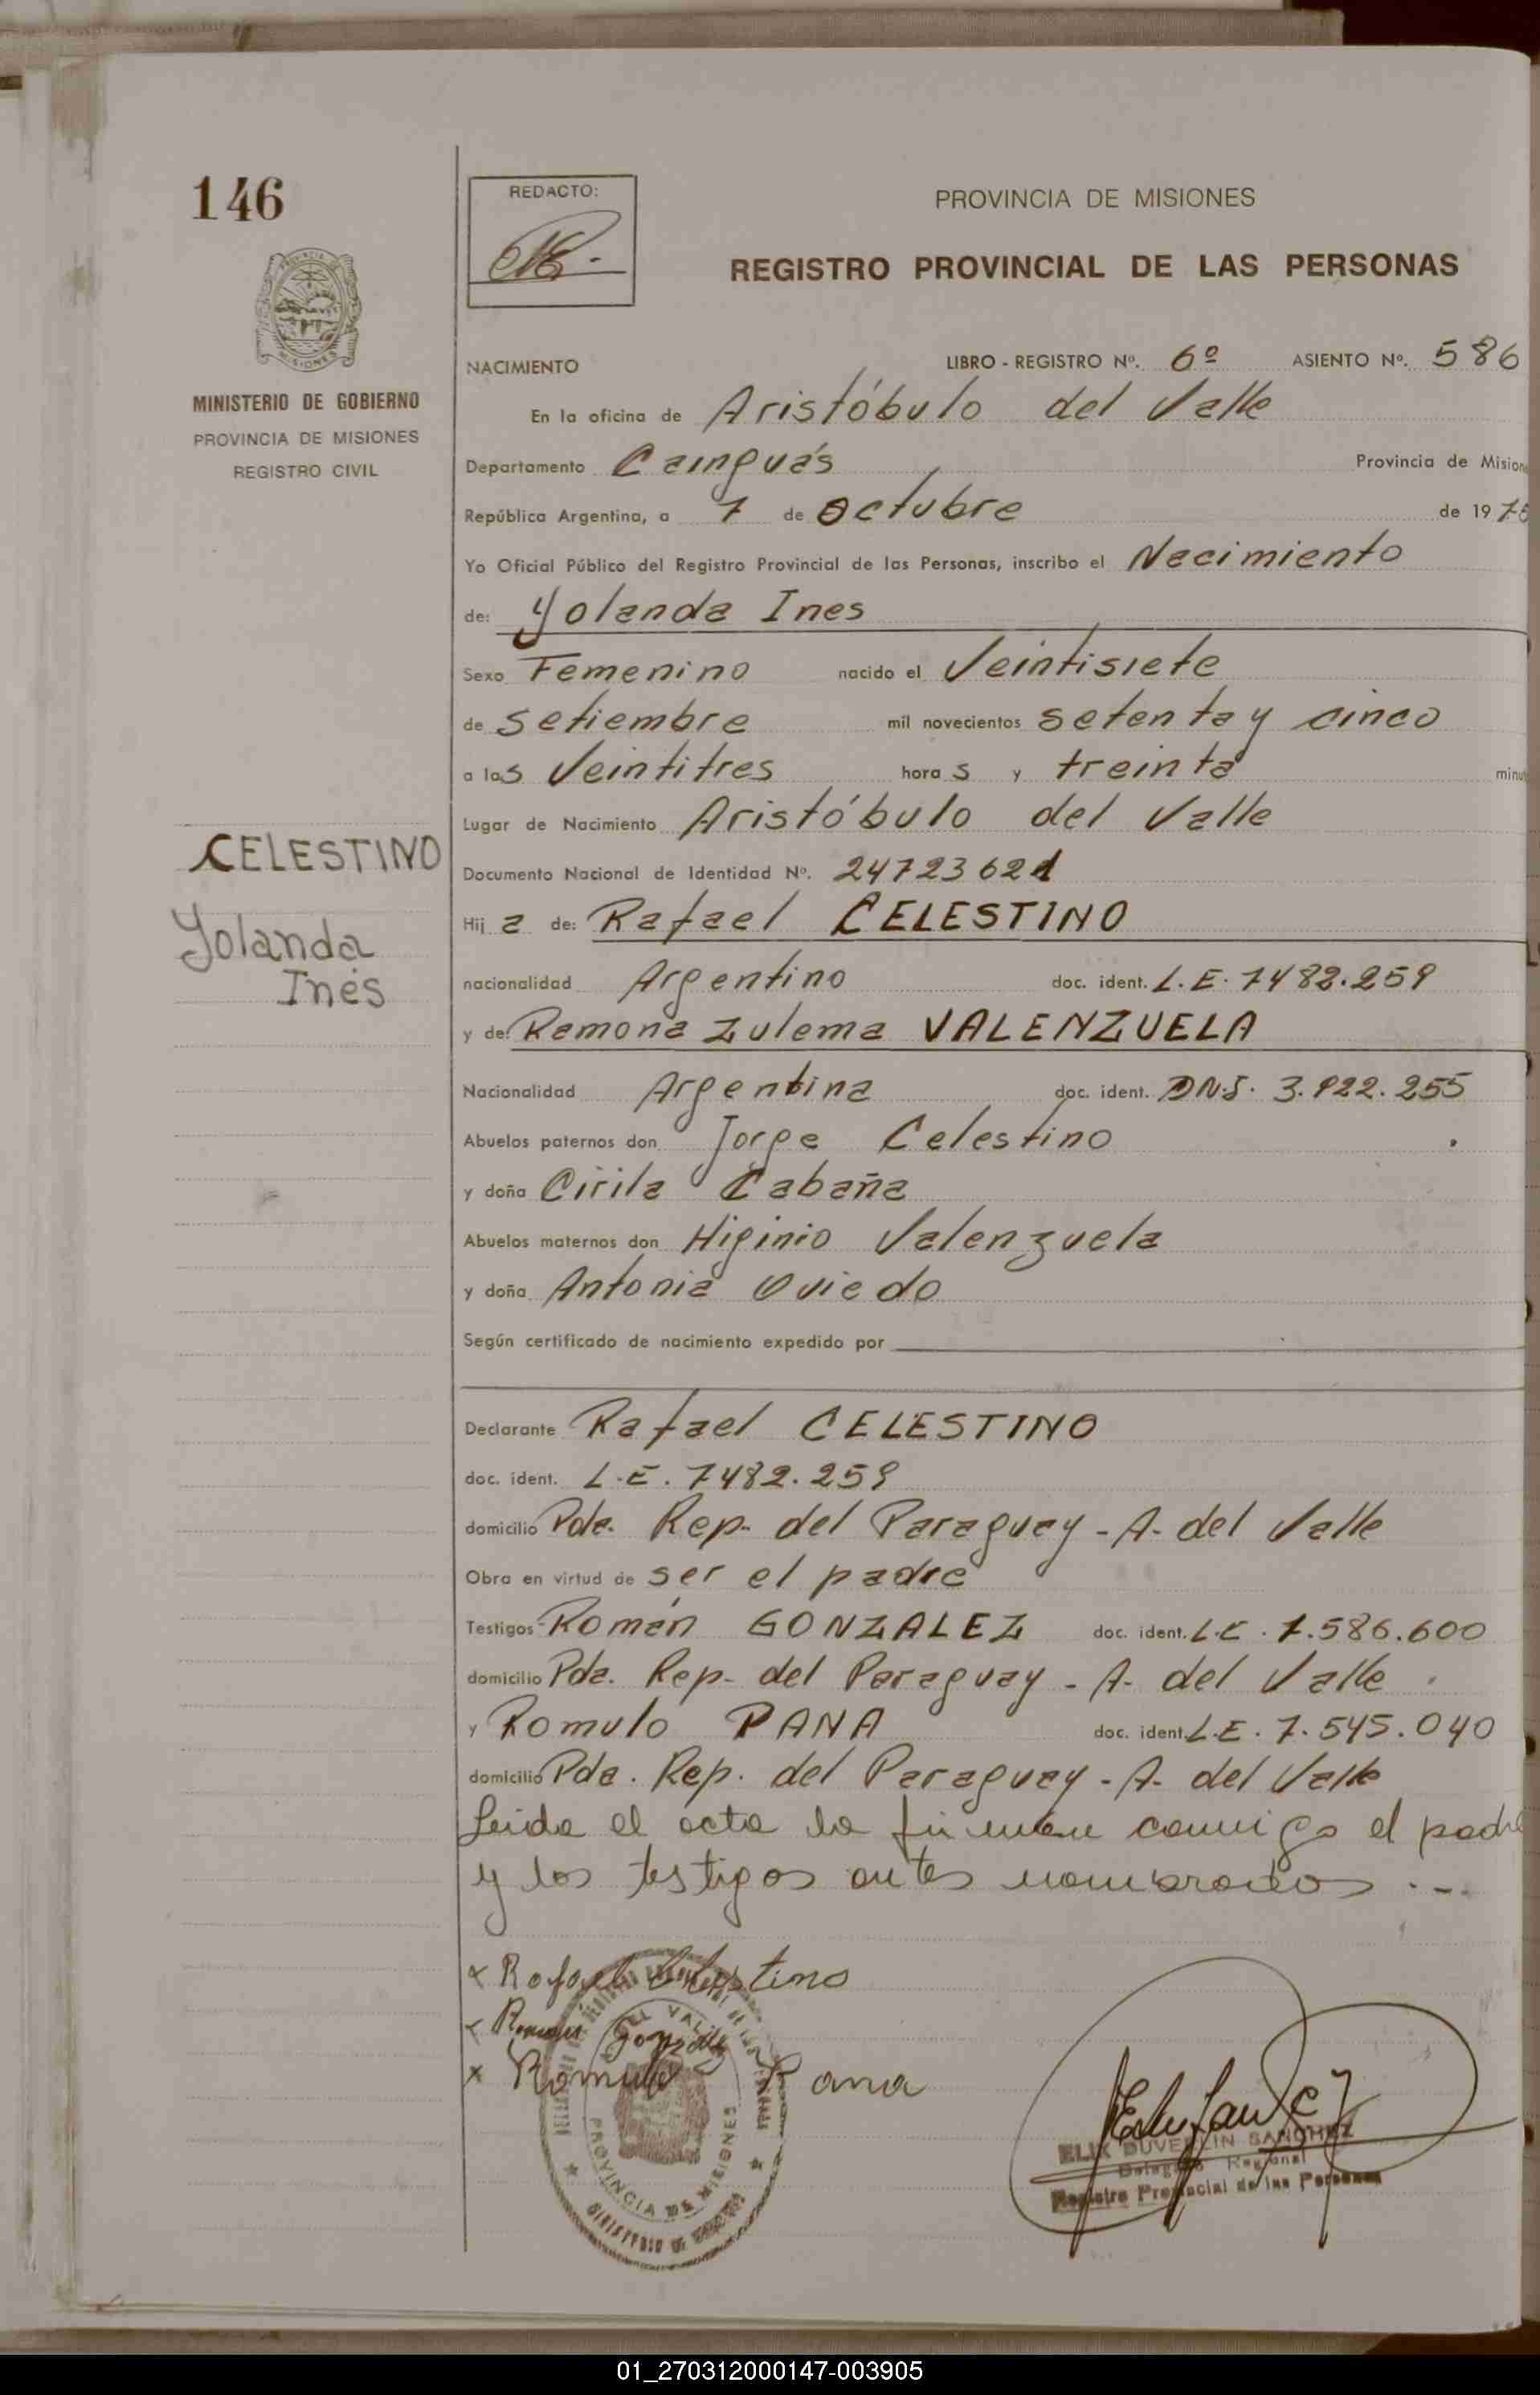 146
REDACTO:
PROVINCIA DE MISIONES
REGISTRO PROVINCIAL DE LAS PERSONAS
MINISTERIO DE GOBIERNO
PROVINCIA DE MISIONES
REGISTRO CIVIL
NACIMIENTO LIBRO - REGISTRO Nº. 6º ASIENTO Nº. 586
En la oficina de Aristóbulo del Valle
Departamento Cainguás Provincia de Mision
República Argentina, a 7 de Octubre de 197
Yo Oficial Público del Registro Provincial de las Personas, inscribo el Nacimiento
de: Yolanda Ines
Sexo Femenino nacido el Veintisiete
de setiembre mil novecientos setenta y cinco
a las Veintitres horas y treinta minu
Lugar de Nacimiento Aristóbulo del Valle
CELESTINO
Documento Nacional de Identidad Nº. 24723621
Hija de: Rafael CELESTINO
Yolanda
Inés
nacionalidad Argentino doc. ident. L.E. 7482.259
y de: Ramona Zulema VALENZUELA
Nacionalidad Argentina doc. ident. DN.I. 3.922.255
Abuelos paternos don Jorge Celestino
y doña Cirila Cabaña
Abuelos maternos don Higinio Valenzuela
y doña Antonia Oviedo
Según certificado de nacimiento expedido por
Declarante Rafael CELESTINO
doc. ident. L.E. 7482.259
domicilio Pda. Rep. del Paraguay - A. del Valle
Obra en virtud de ser el padre
Testigos Román GONZALEZ doc. ident. L.E. 7.586.600
domicilio Pda. Rep. del Paraguay - A. del Valle
y Romulo PANA doc. ident. L.E. 7.545.040
domicilio Pda. Rep. del Paraguay - A. del Valle
Leida el acta la firman conmigo el padre
y los testigos antes nombrados . - -
x Rafael Celestino
x Roman Gonzalez
x Romulo Pana
DEL VALLE
PROVINCIA DE MISIONES
MINISTERIO DE GOBIERNO
ELIX DUVERLIN SANCHEZ
Delegado Regional
Registro Provincial de las Personas
01_270312000147-003905